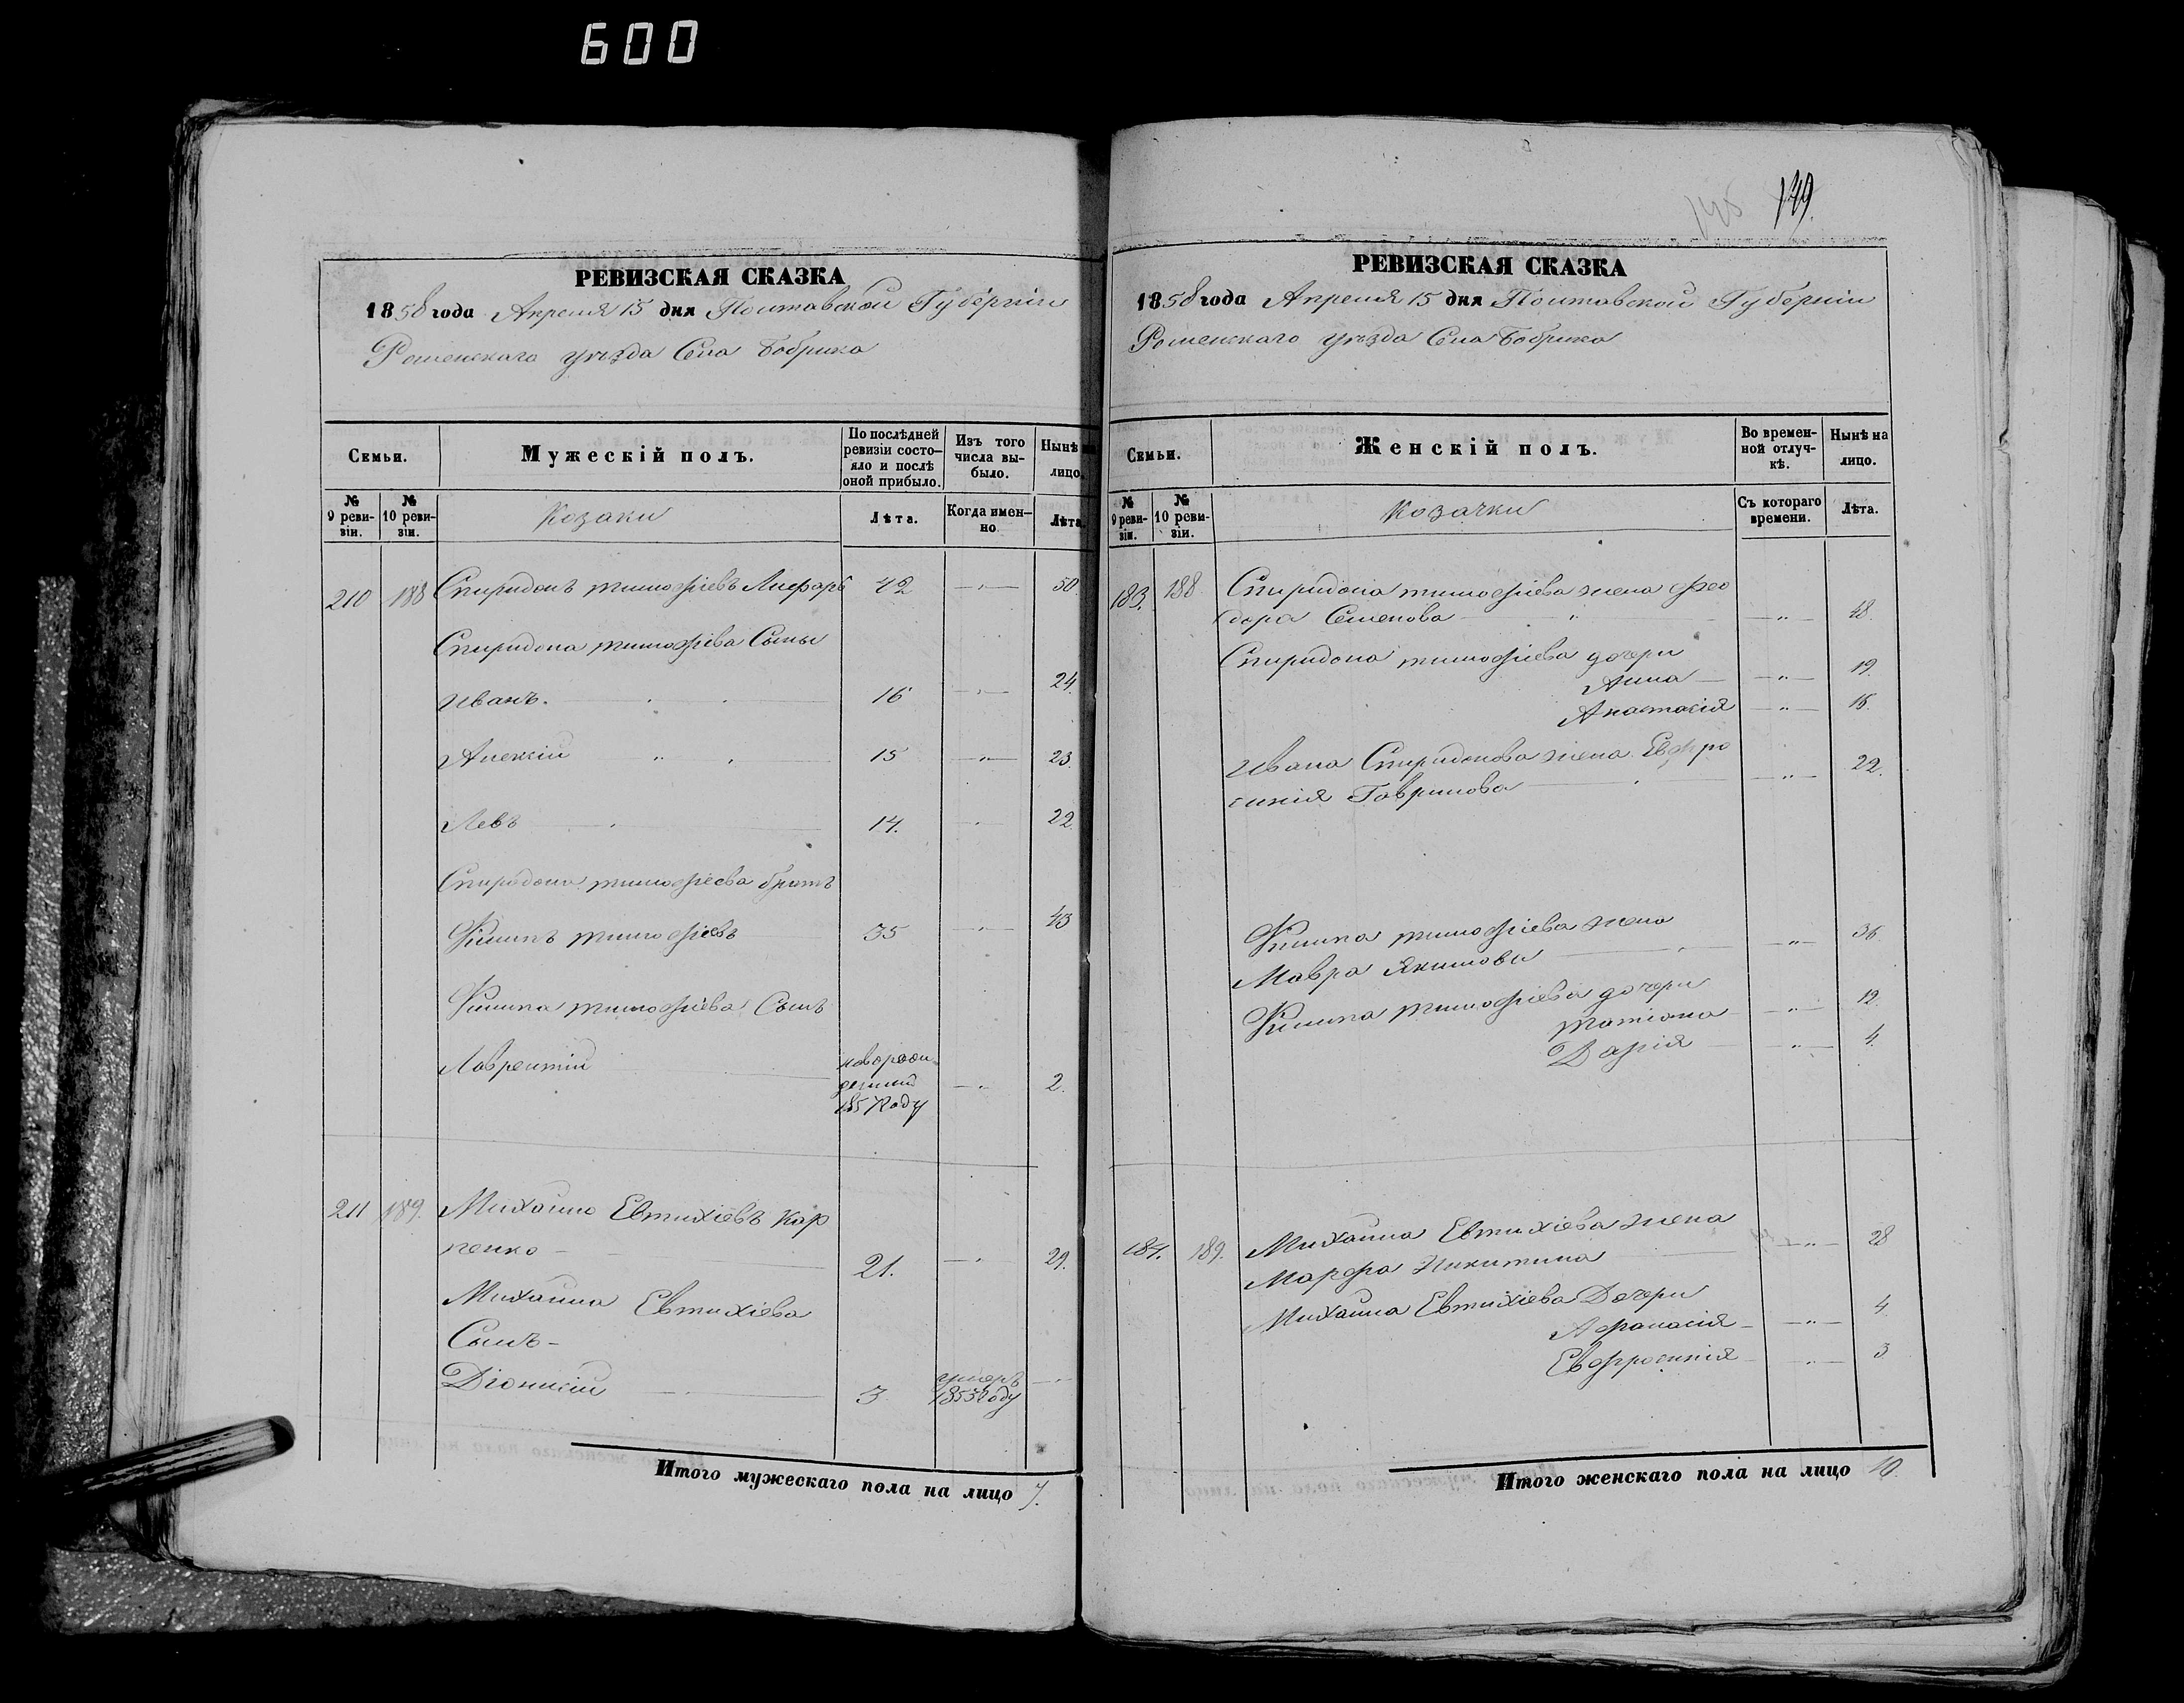 600
149.
РЕВИЗСКАЯ СКАЗКА
1858 года Апреля 15 дня Полтавской Губерніи
Роменскаго уѣзда Села Бобрика
Семьи.
Мужескій полъ.
По послѣдней ревизіи состо-
яло и послѣ
оной прибыло.
Изъ того
числа вы-
было.
Нынѣ
лицо.
№
9 реви-
зіи.
№
10 реви-
зіи.
Козаки
Лѣта.
Когда имен-
но
Лѣта
210 188 Спиридонъ тимофіевъ 42 — 50
Спиридона тимофіева Сыны
иванъ. 16 — 24.
Алексій 15 — 23.
Левъ 14. — 22
Спиридона тимофіева братъ
Филипъ тимофіевъ 35 — 43
Филипа тимофіева Сынъ
Лаврентій новорож-
денный
1857 году — 2.
211 189. Михаило Евтихіевъ Кар
пенко — 21. — 29.
Михаила Евтихіева
Сынъ-
Діонисій 3 умеръ
1855 году
Итого мужескаго пола на лицо 7.
РЕВИЗСКАЯ СКАЗКА
1858 года Апреля 15 дня Полтавской Губерніи
Роменскаго уѣзда Села Бобрика
Семьи.
Женскій полъ.
Во времен-
ной отлуч-
кѣ.
Нынѣ на
лицо.
№
9 реви-
зіи.
№
10 реви-
зіи.
Козачки
Съ котораго
времени.
Лѣта.
183. 188 Спиридона тимофіева жена Фео
дора Семенова — 48.
Спиридона тимофіева дочери
Анна — 19.
Анастасія — 15.
Ивана Спиридонова жена Евфро
синія Гаврилова — 22.
Филипа тимофіева жена
Мавра Якимова — 36.
Филипа тимофіева дочери
татіана — 12.
Дарія — 4.
184. 189. Михаила Евтихіева жена
Марфа Никитина — 28
Михаила Евтихіева Дочери
Афанасія — 4.
Евфросинія — 3
Итого женскаго пола на лицо 10.